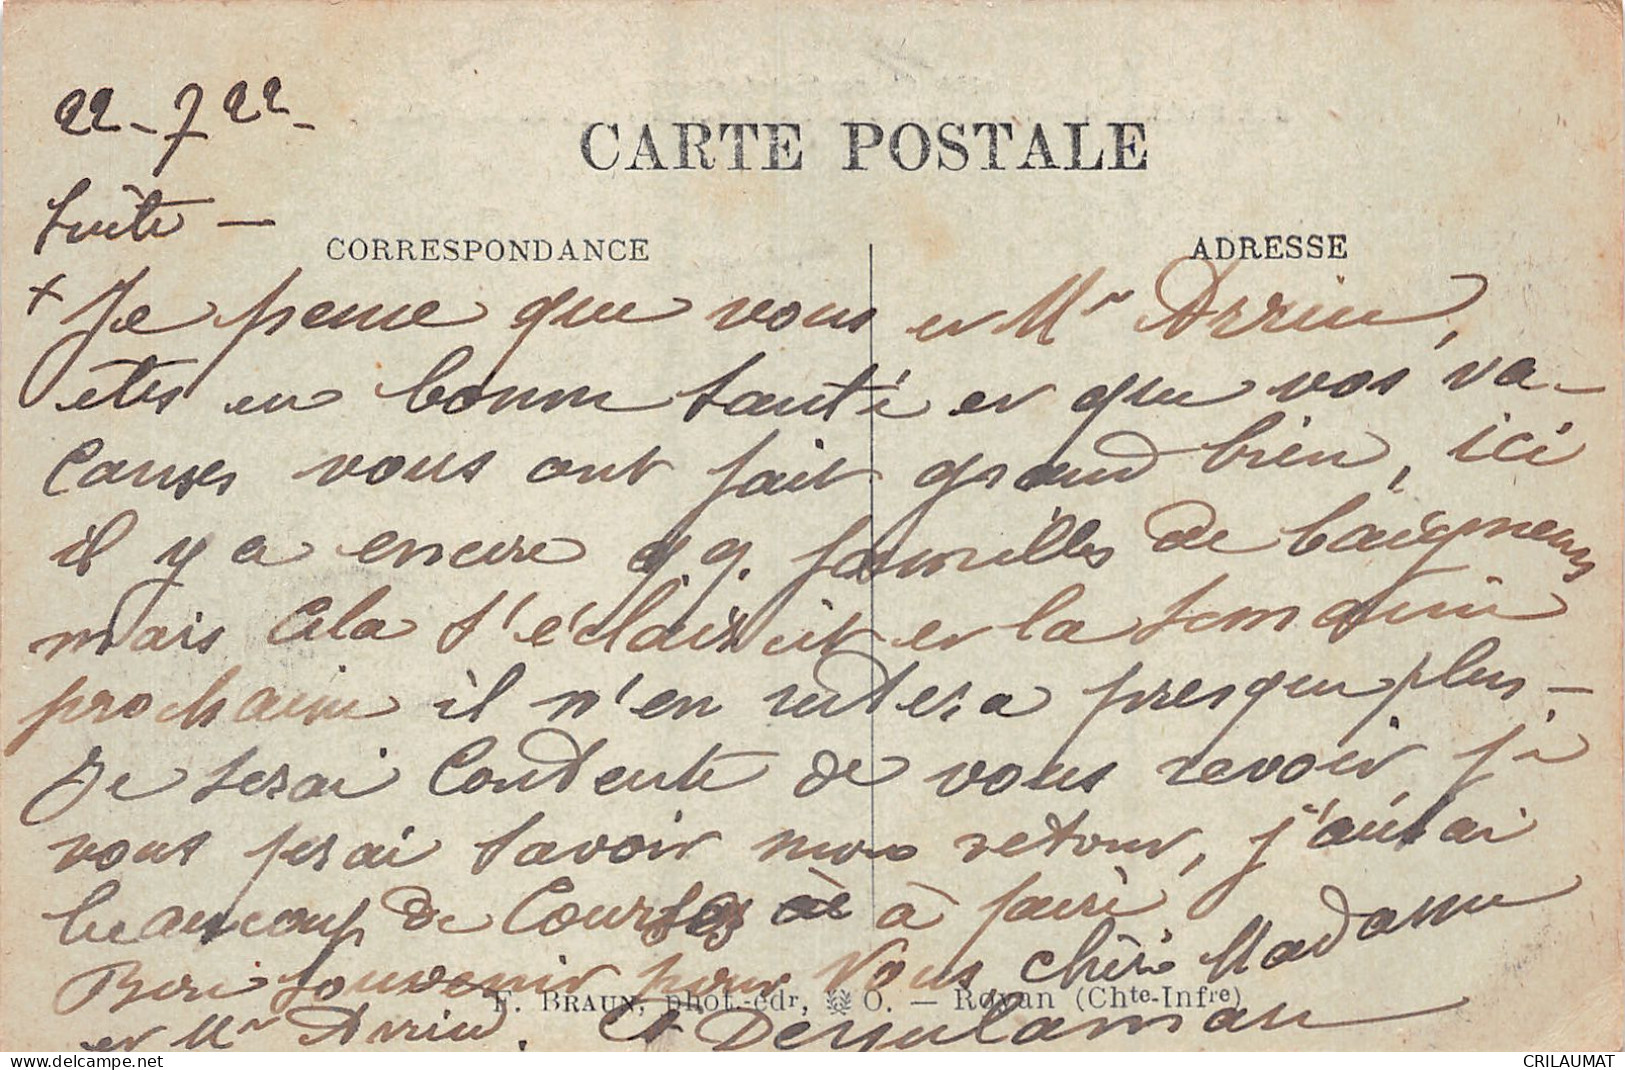 22-7 22-
CARTE POSTALE
Suite -
CORRESPONDANCE
ADRESSE
+ Je pense que vous et Mr Arrieu,
êtes en bonne santé et que vos va-
canses vous ont fait grand bien, ici
il y a encore qq. familles de baigneurs
mais cela s'éclaircit et la semaine
prochaine il n'en restera presque plus -
Je serai contente de vous revoir, je
vous ferai savoir mon retour, j'aurai
beaucoup de courses à faire
Bon souvenir pour vous chère Madame
et Mr Arrieu.
F. BRAUN, phot.-édr, O. - Royan (Chte-Infre)
CRILAUMAT